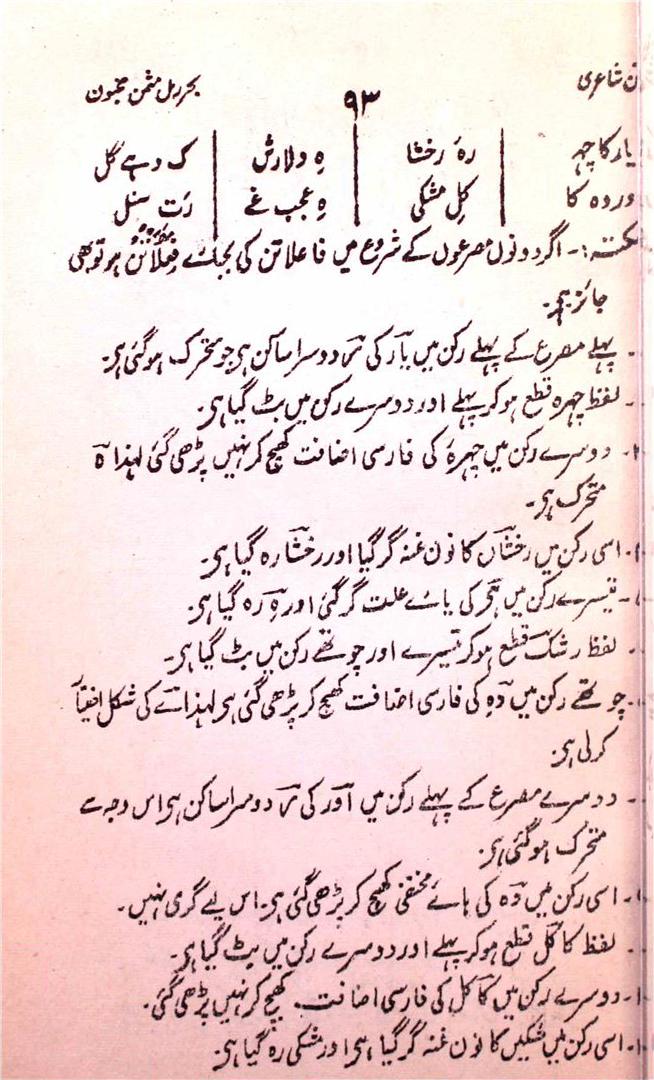 ن شاعری ۹۳ بحر رمل مثمن مخبون
یار کا چہ | رۂ رخشا | ہِ دلارش | ک دہے گل
ور وہ کا | کلِ مشکی | ہِ عجب غے | رَت سنبل
نکتہ :۔ اگر دونوں مصرعوں کے شروع میں فاعلاتن کی بجائے فَعِلاتن ہو تو بھی
جائز ہی۔
۔ پہلے مصرع کے پہلے رکن میں یار کی ر دوسرا ساکن ہی جو متحرک ہو گئی ہی۔
۔ لفظ چہرہ قطع ہو کر پہلے اور دوسرے رکن میں بٹ گیا ہی۔
۔ دوسرے رکن میں چہرۂ کی فارسی اضافت کھیچ کر نہیں پڑھی گئی لہذا ہ
متحرک ہی۔
۔ اسی رکن میں رخشاں کا نون غنہ گر گیا اور رخشا رہ گیا ہی۔
۔ تیسرے رکن میں ہی کی یائے علت گر گئی اور ہِ رہ گیا ہی۔
۔ لفظ رشک قطع ہو کر تیسرے اور چوتھے رکن میں بٹ گیا ہی۔
۔ چوتھے رکن میں دہِ کی فارسی اضافت کھیچ کر پڑھی گئی ہی لہذا ے کی شکل اختیار
کر لی ہی۔
۔ دوسرے مصرع کے پہلے رکن میں اور کی ر دوسرا ساکن ہی اس وجہ سے
متحرک ہو گئی ہی۔
۔ اسی رکن میں وہ کی ہائے مختفی کھیچ کر پڑھی گئی ہی۔ اس لیے گری نہیں۔
۔ لفظ کاکل قطع ہو کر پہلے اور دوسرے رکن میں بٹ گیا ہی۔
۔ دوسرے رکن میں کاکل کی فارسی اضافت کھیچ کر نہیں پڑھی گئی۔
۔ اسی رکن میں مشکیں کا نون غنہ گر گیا ہی اور مشکی رہ گیا ہی۔